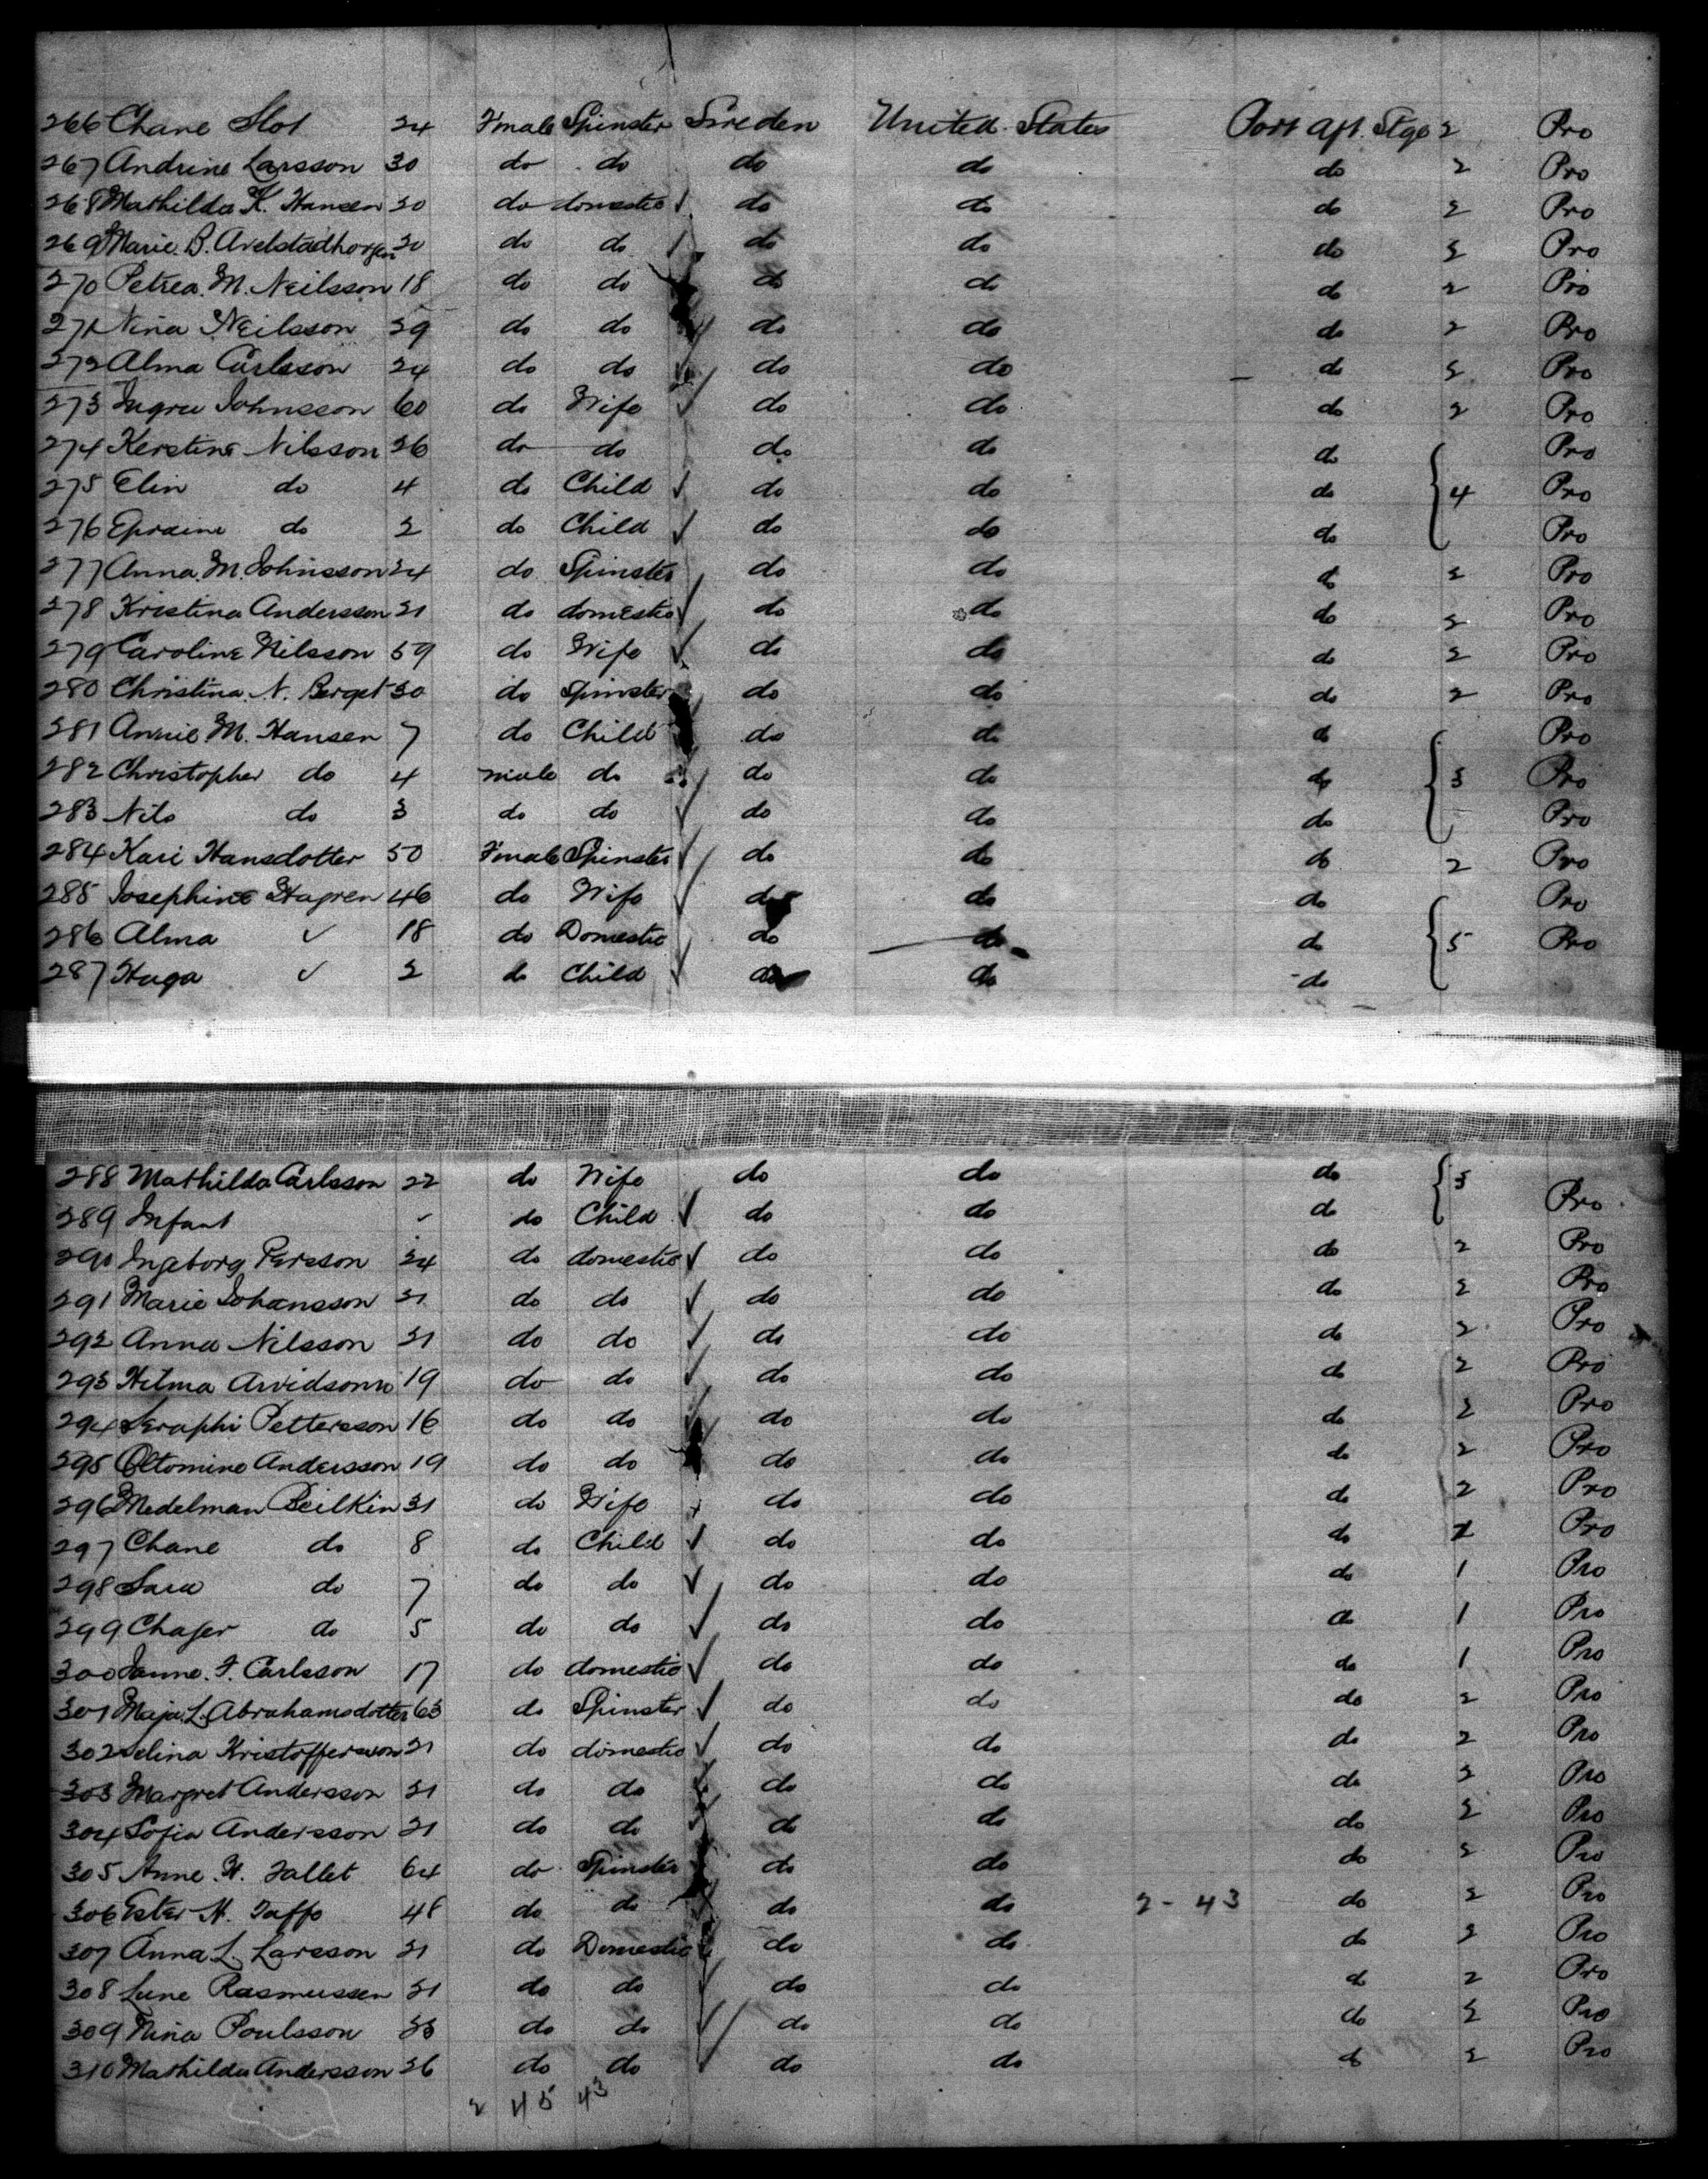 266 Chane Slot 24 Fmale Spinster Sweden United States Port aft. Stge 2 Pro
267 Andrine Larsson 30 do do do do do 2 Pro
268 Mathilda K. Hansen 20 do domestic do do do 2 Pro
269 Marie. B. 20 do do do do do 2 Pro
270 Petrea. M. Neilsson 18 do do do do do 2 Pro
271 Nina Neilsson 29 do do do do do 2 Pro
272 Alma Carlsson 24 do do do do do 2 Pro
273 Johnsson 60 do Wife do do do 2 Pro
274 Kerstine Nilsson 26 do do do do do Pro
275 Elin do 4 do Child do do do 4 Pro
276 Epraine do 2 do Child do do do Pro
277 Anna. M. Johnsson 24 do Spinster do do do 2 Pro
278 Kristina Andersson 21 do domestic do do do 2 Pro
279 Caroline Nilsson 59 do Wife do do do 2 Pro
280 Christina. N. Berget 30 do Spinster do do do 2 Pro
281 Annie M. Hansen 7 do Child do do do Pro
282 Christopher do 4 male do do do do 3 Pro
283 Nils do 3 do do do do do Pro
284 Kari Hansdotter 50 Fmale Spinster do do do 2 Pro
285 Josephine Hagren 46 do Wife do do do Pro
286 Alma 18 do Domestic do do do 5 Pro
287 Huga 2 do Child do do do
288 Mathilda Carlsson 22 do Wife do do do 3
289 Infant do Child do do do Pro
290 Ingeborg Persson 24 do domestic do do do 2 Pro
291 Marie Johansson 21 do do do do do 2 Pro
292 Anna Nilsson 21 do do do do do 2 Pro
293 Hilma Arvidsonn 19 do do do do do 2 Pro
294 Seraphi Pettersson 16 do do do do do 2 Pro
295 Oltomine Andersson 19 do do do do do 2 Pro
296 Medelman Beilkin 31 do Wife do do do 2 Pro
297 Chane do 8 do Child do do do 1 Pro
298 Sara do 7 do do do do do 1 Pro
299 Chajer do 5 do do do do do 1 Pro
300 Janne. F. Carlsson 17 do domestic do do do 1 Pro
301 Maja. L. Abrahamsdotter 63 do Spinster do do do 2 Pro
302 Selina Kristoffersson 21 do domestic do do do 2 Pro
303 Margret Andersson 21 do do do do do 2 Pro
304 Sofia Andersson 21 do do do do do 2 Pro
305 Anne. H. Fallet 64 do Spinster do do do 2 Pro
306 Ester N. Taffo 48 do do do do 2-43 do 2 Pro
307 Anna L. Larsson 21 do Domestic do do do 2 Pro
308 Lune Rasmussen 21 do do do do do 2 Pro
309 Nina Poulsson do do do do do 2 Pro
310 Mathilda Andersson 26 do do do do do 2 Pro
2 45 43